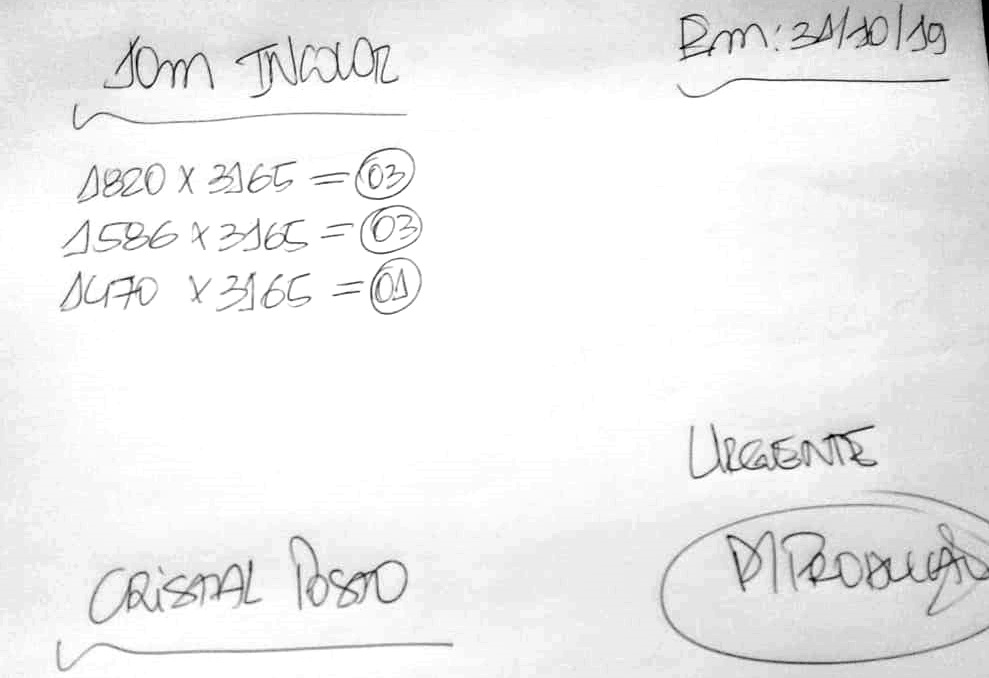 10m INCOLOR
Em: 31/10/19
1820 x 3165 = 03
1586 x 3165 = 03
1470 x 3165 = 01
URGENTE
P/ PRODUÇÃO
CRISTAL POSTO